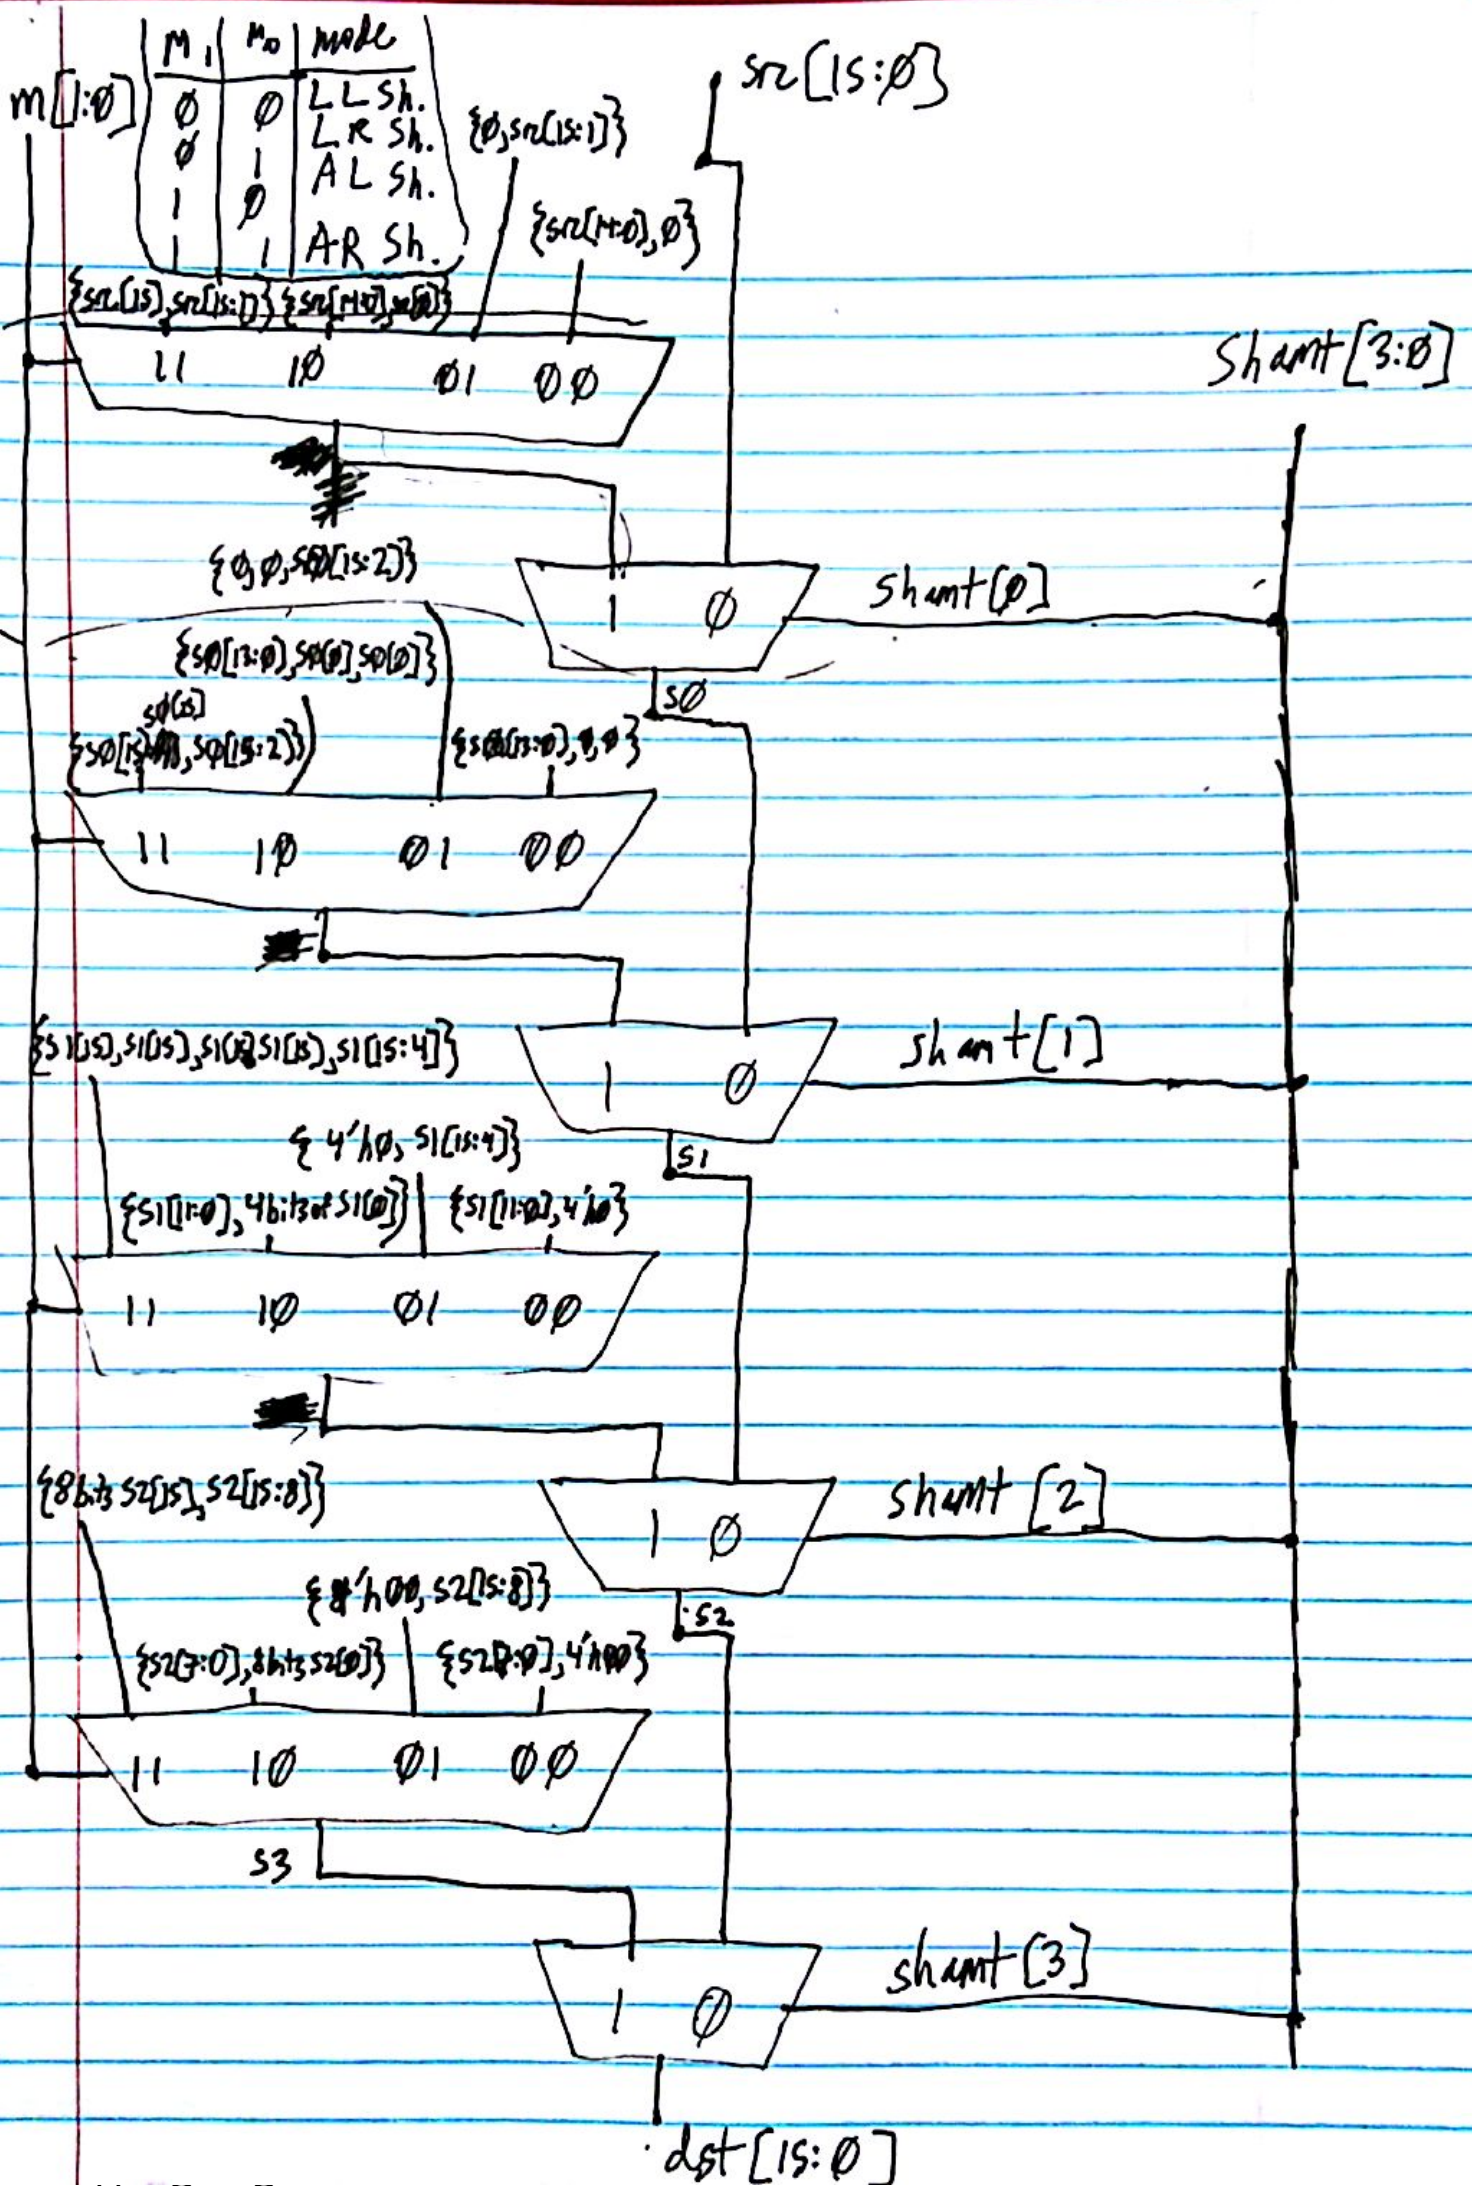 m[1:Ø]
M1 M0 mode
Ø Ø LL Sh.
Ø 1 LR Sh.
1 Ø AL Sh.
1 1 AR Sh.
src[15:Ø]
{Ø,src[15:1]}
{src[14:0],Ø}
{src[15],src[15:1]} {src[14:0],src[Ø]}
11 1Ø Ø1 ØØ
Shamt[3:Ø]
{Ø,Ø,sØ[15:2]}
1 Ø
shamt[Ø]
{sØ[13:Ø],sØ[Ø],sØ[Ø]}
sØ
sØ[15]
{sØ[15],sØ[15:2]}
{sØ[13:Ø],Ø,Ø}
11 1Ø Ø1 ØØ
{s1[15],s1[15],s1[15],s1[15],s1[15:4]}
1 Ø
shamt[1]
{4'hØ,s1[15:4]}
s1
{s1[11:Ø],4bits of s1[Ø]}
{s1[11:Ø],4'hØ}
11 1Ø Ø1 ØØ
{8bits s2[15],s2[15:8]}
1 Ø
shamt[2]
{8'h00,s2[15:8]}
s2
{s2[7:0],8bits s2[Ø]}
{s2[7:Ø],4'hØØ}
11 1Ø Ø1 ØØ
s3
1 Ø
shamt[3]
dst[15:Ø]